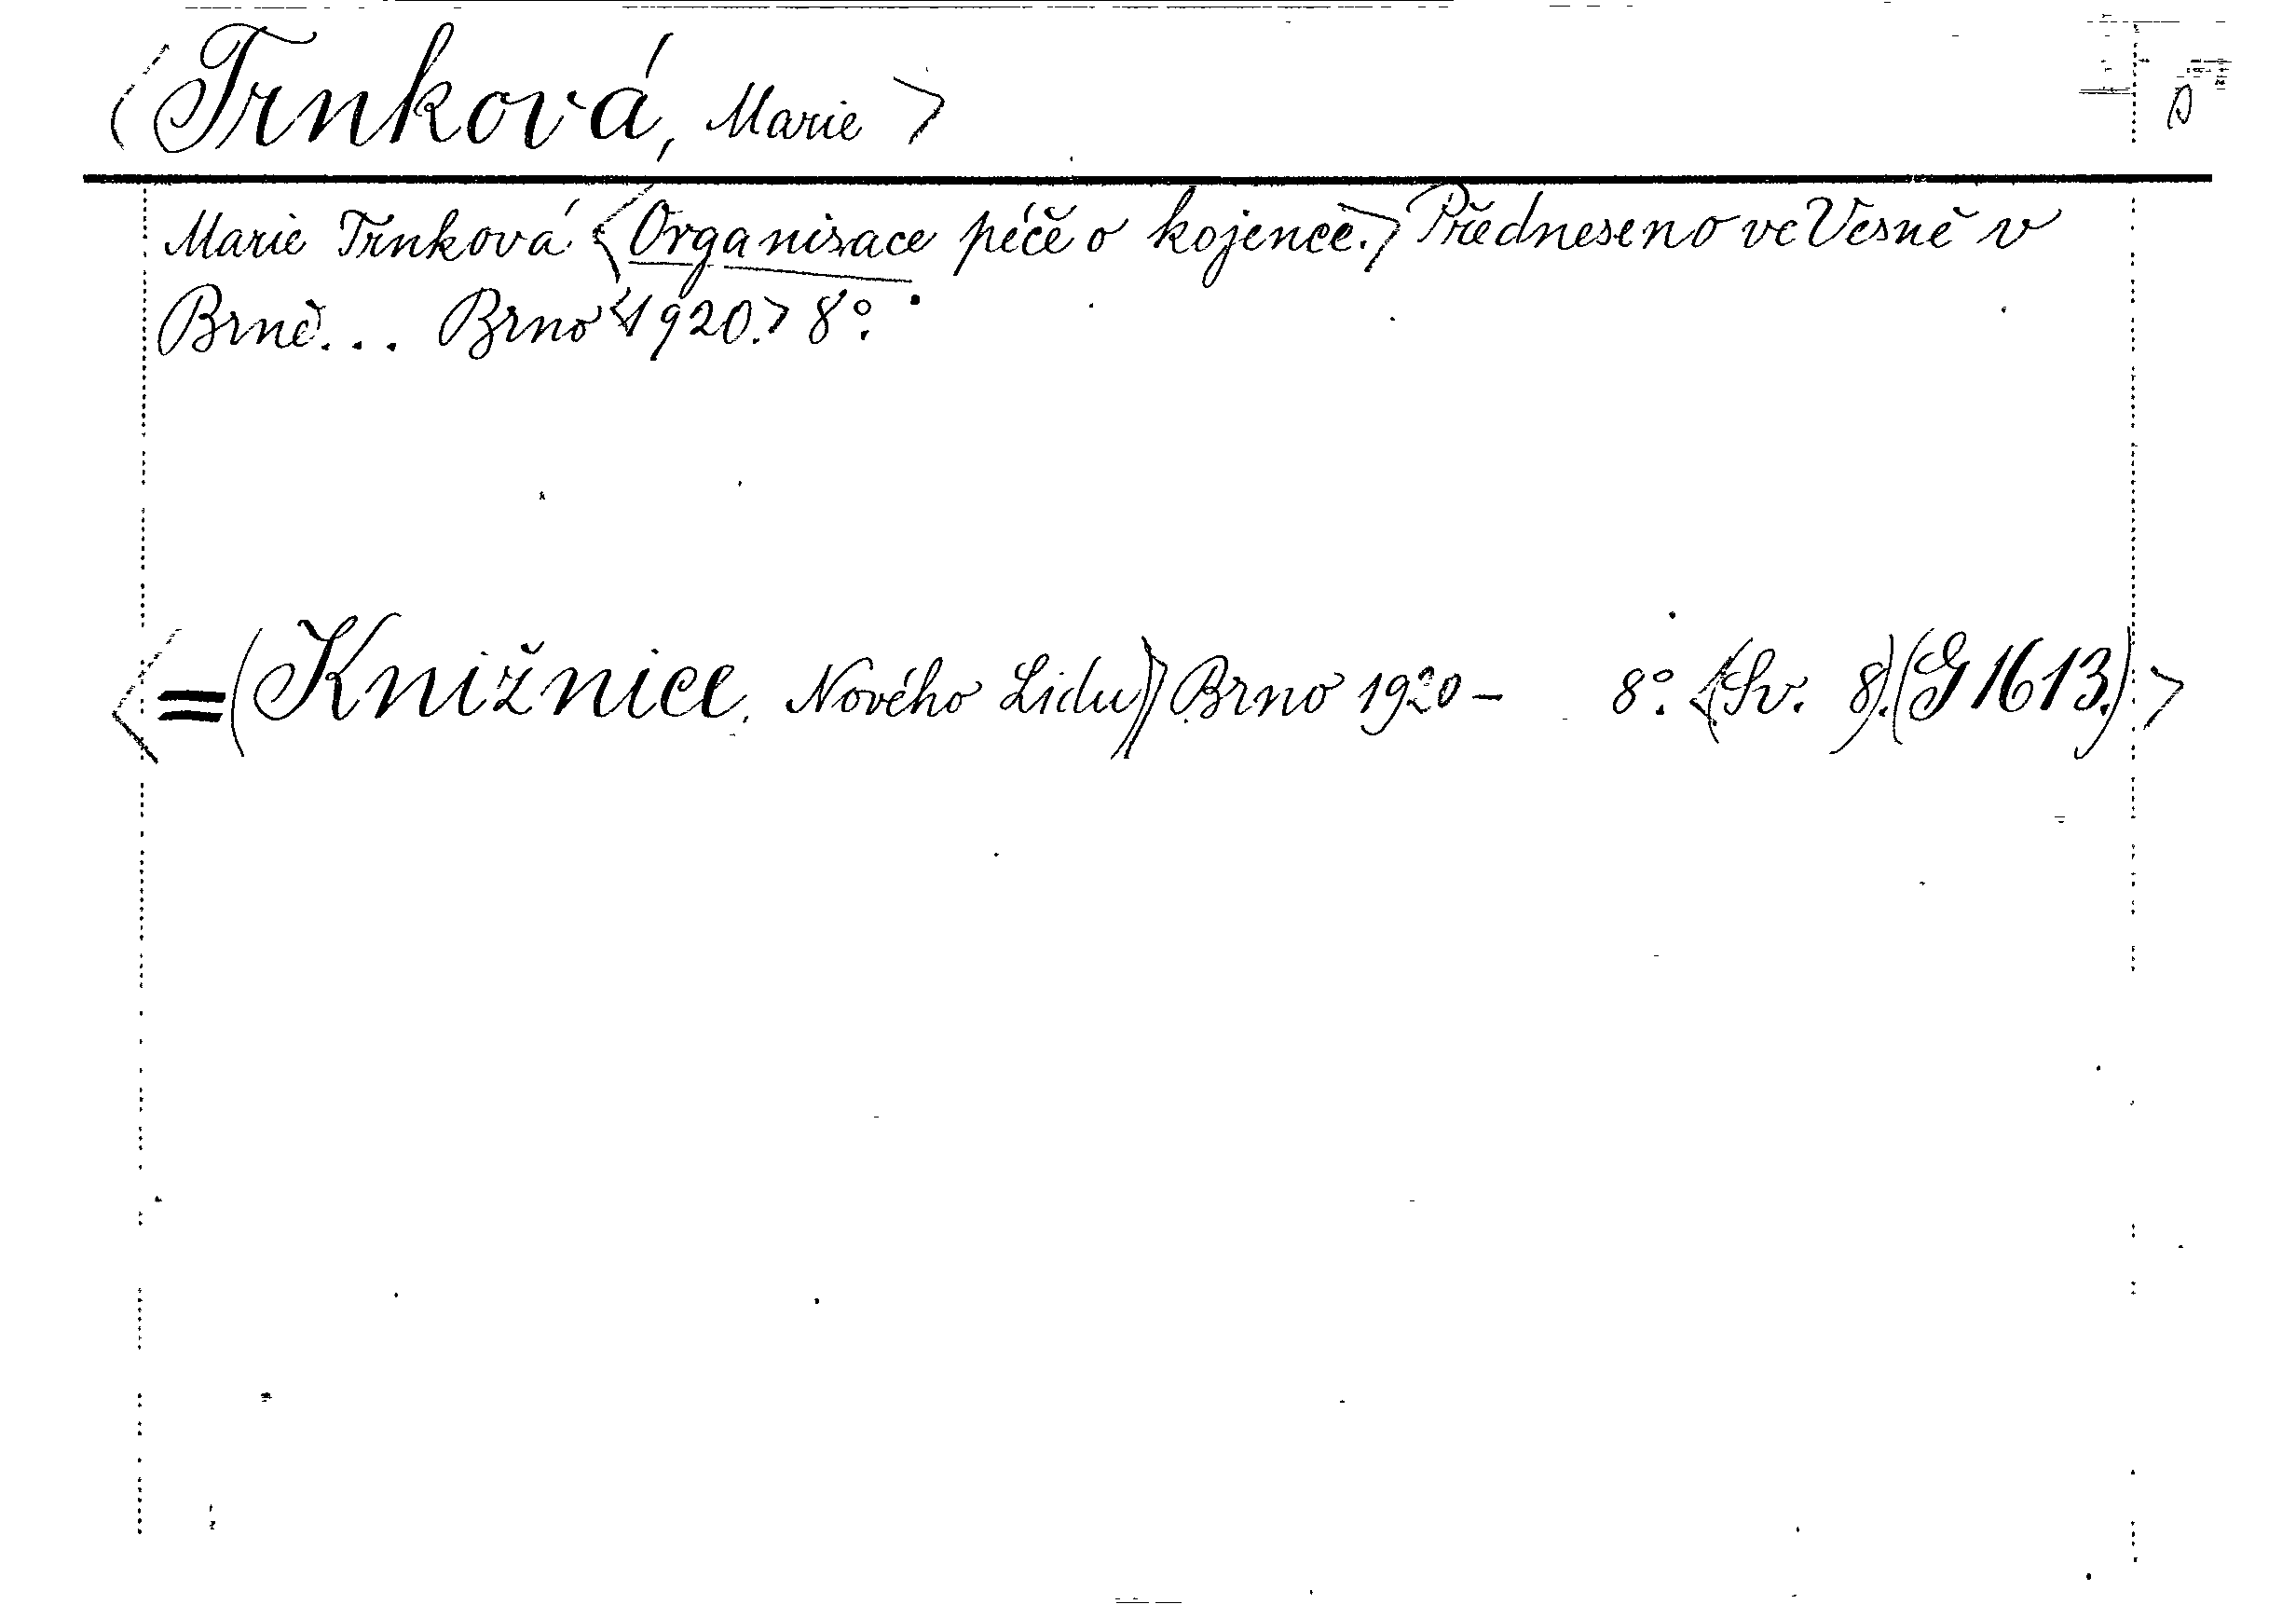 <Trnková, Marie>
Marie Trnková <Organisace péče o kojence.> Předneseno ve Vesně v
Brně... Brno <1920.> 8°.
<=(Knižnice, Nového Lidu)> Brno 1920- 8°. <(Sv. 8).(G 1613.)>